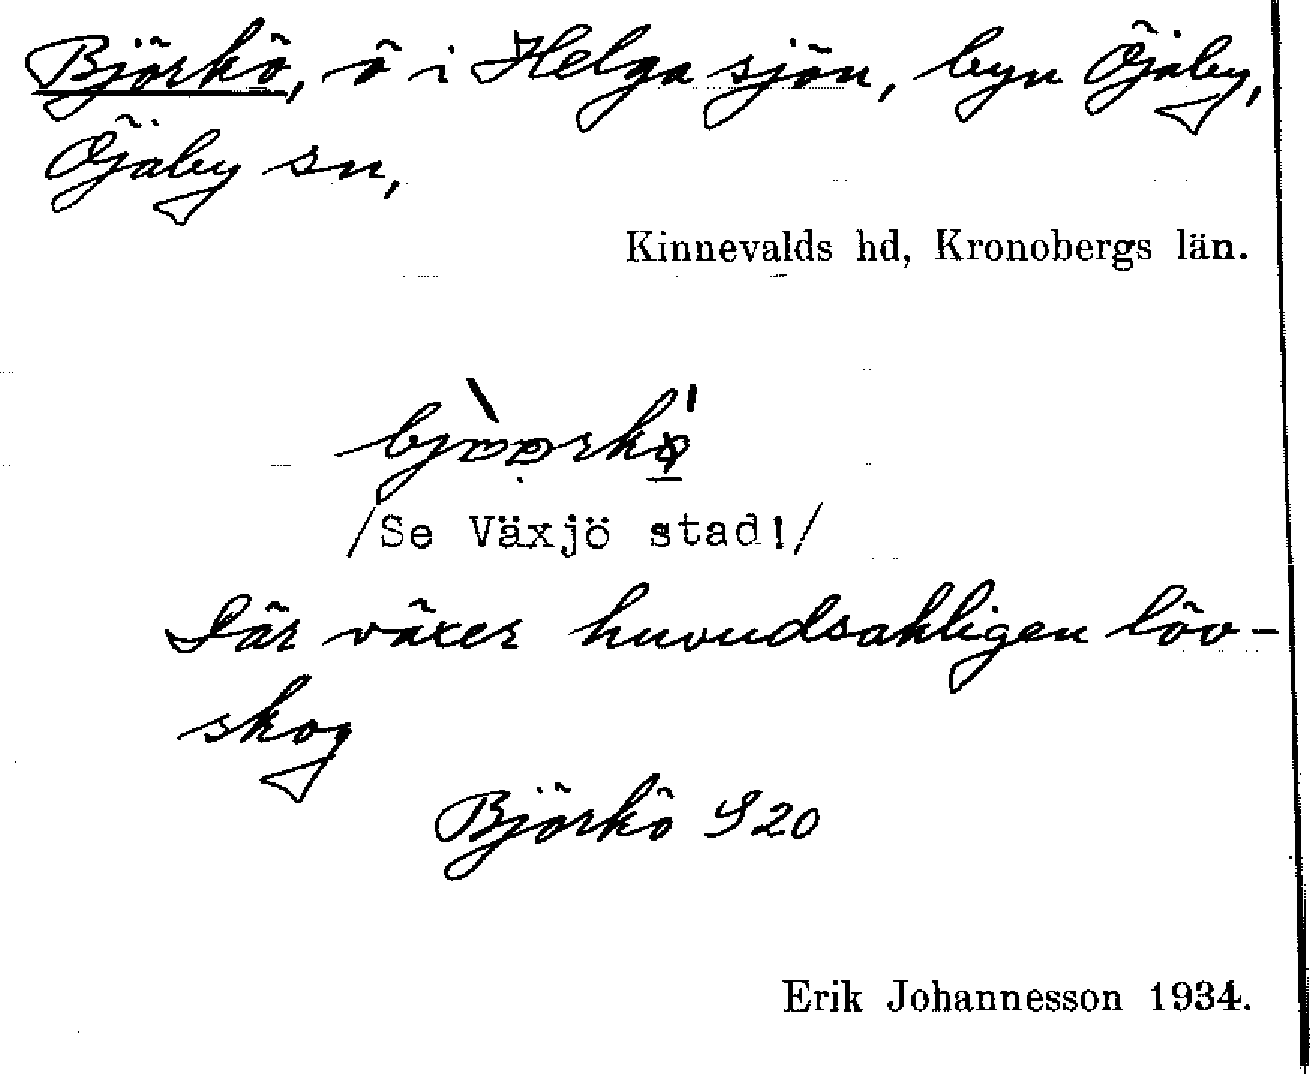 Björkö, ö i Helgasjön, byn Öjaby,
Öjaby sn,
Kinnevalds hd, Kronobergs län.
/Se Växjö stad!/
Där växer huvudsakligen löv-
skog
Björkö S 20
Erik Johannesson 1934.